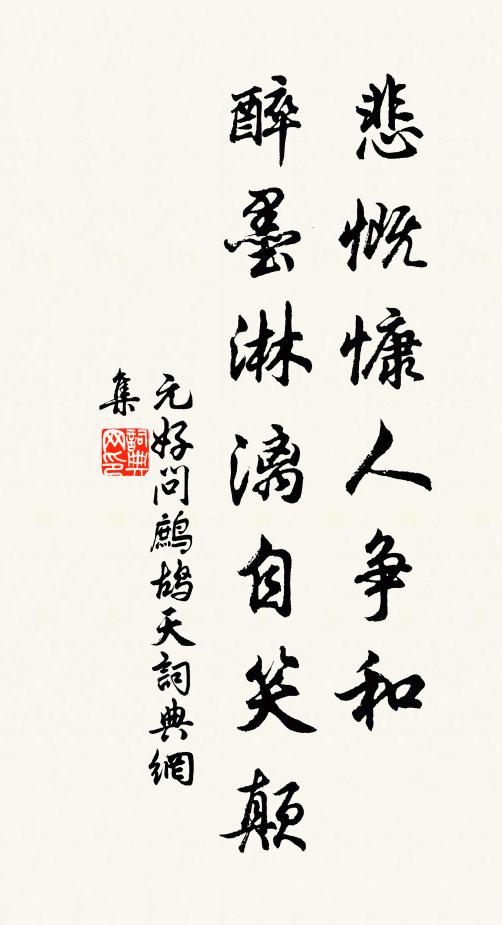 悲慨慷人争和
醉墨淋漓自笑颠
元好问鹧鸪天詞典網
集
詞典网印